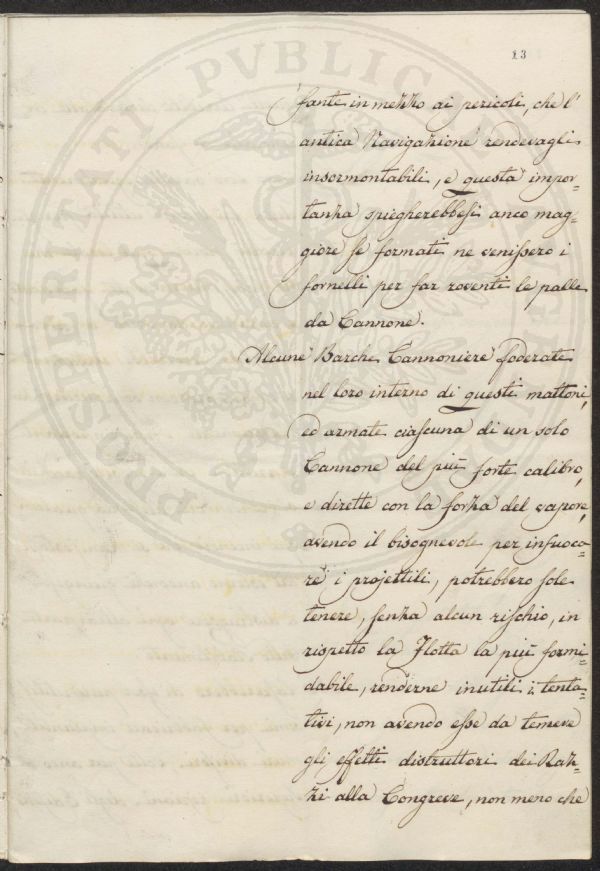 13
fante in mezzo ai pericoli, che l'
antica Navigazione rendevagli
insormontabili, e questa impor=
tanza spiegherebbesi anco mag=
giore se formati ne venissero i
fornelli per far roventi le palle
da Cannone.
Alcune Barche Cannoniere foderate
nel loro interno di questi mattoni,
ed armate ciascuna di un solo
Cannone del più forte calibro,
e dirette con la forza del vapore,
avendo il bisognevole per infuoca=
re i projettili, potrebbero sole
tenere, senza alcun rischio, in
rispetto la Flotta la più formi=
dabile, renderne inutili i tenta=
tivi, non avendo esse da temere
gli effetti distruttori dei Raz=
zi alla Congreve, non meno che
PROSPERITATI PVBLIC